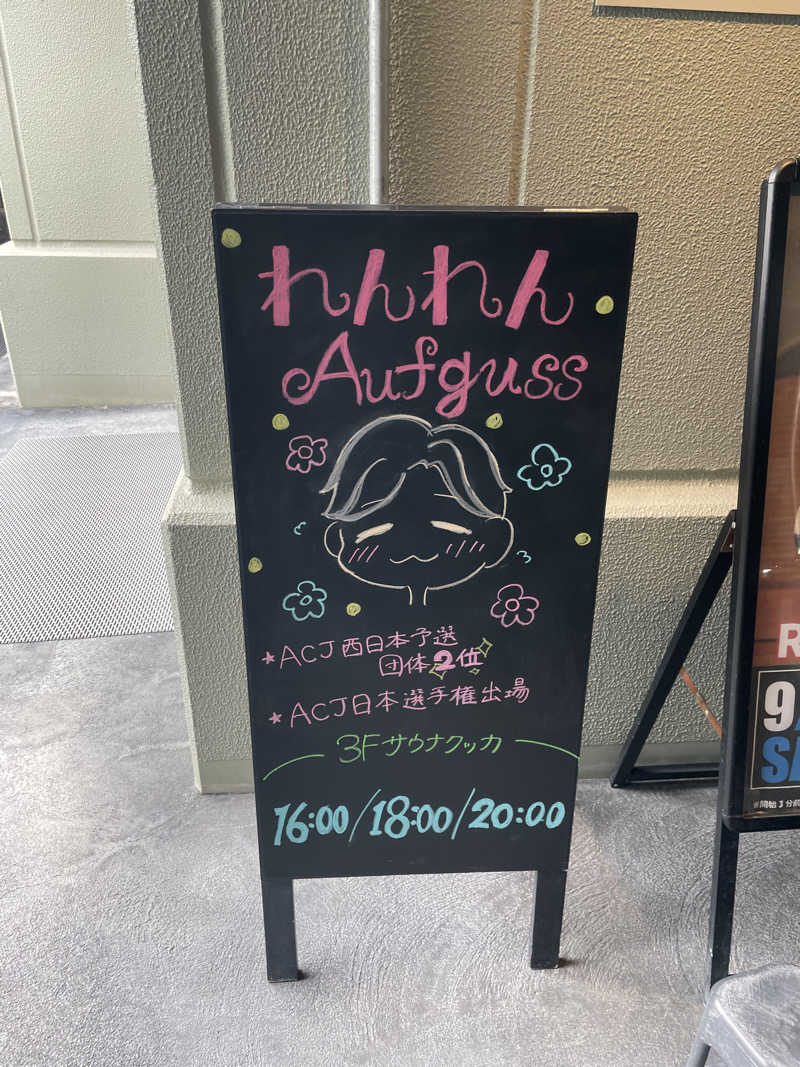 れんれん
Aufguss
★ACJ西日本予選
団体2位
★ACJ日本選手権出場
3Fサウナクッカ
16:00/18:00/20:00
R
9/
SA
※開始3分前